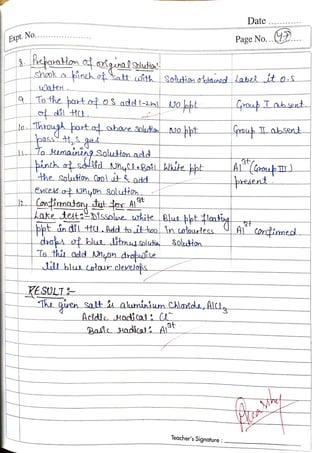 Date ............
Expt. No............ Page No...47
8. Preparation of original solution:
Shook a pinch of salt with Solution obtained Label it O.S
water.
9. To the part of O.S add 1-2ml No ppt Group I absent.
of dil HCl.
10. Through part of above solution No ppt Group II absent.
pass H2S gas
11. To remaining solution add
pinch of solid NH4Cl. Boil White ppt Al3+ (Group III)
the solution Cool it & add present
excess of NH4OH solution.
12. Confirmatory test for Al3+
Lake test:- Dissolve white Blue ppt floating
ppt in dil HCl. Add to it two in colourless Al3+ confirmed.
drops of blue litmus solution solution
To this add NH4OH dropwise
till blue colour develops
RESULT:-
The given salt is aluminium Chloride, AlCl3
Acidic radical: Cl-
Basic radical: Al3+
Teacher's Signature :